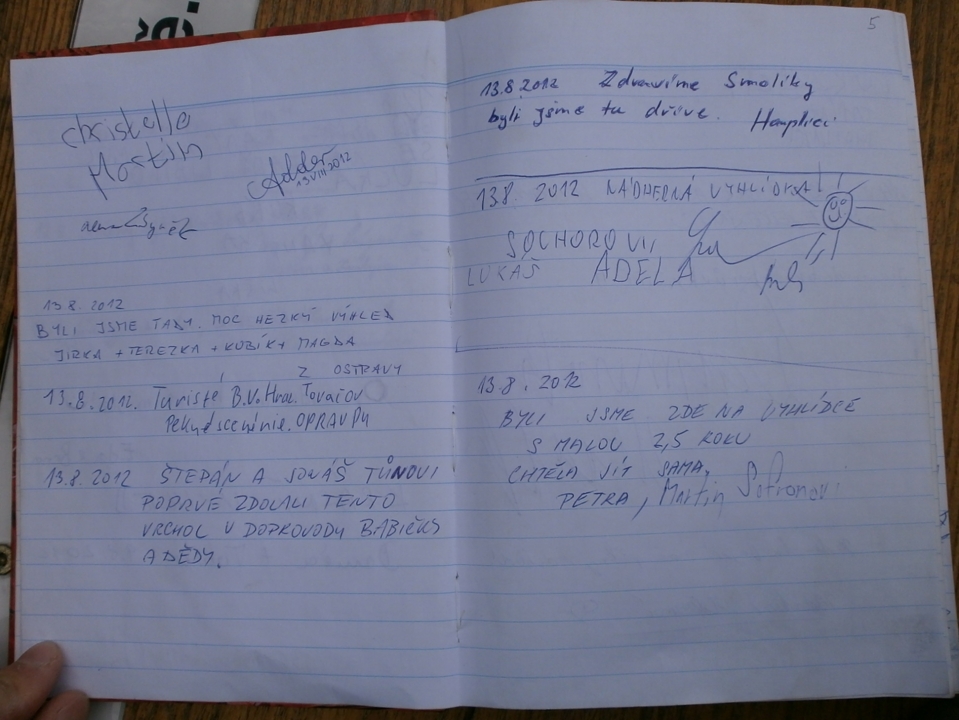 Christelle
Martin
Adder
13 VIII 2012
13.8. 2012
BYLI JSME TADY. MOC HEZKÝ VÝHLED
JIRKA + TEREZKA + KUBÍK + MAGDA
Z OSTRAVY
13.8.2012. Turisté B.V. Hran. Tovačov
OPRAVDU
13.8.2012 ŠTEPÁN A JONÁŠ TŮNOVI
POPRVÉ ZDOLALI TENTO
VRCHOL V DOPROVODU BABIČKY
A DĚDY.
5
13.8.2012 Zdravíme Smolíky
byli jsme tu dříve.
13.8. 2012 NÁDHERNÁ VYHLÍDKA!
SOCHOROVI
LUKAŠ ADELA
13.8.2012
BYLI JSME ZDE NA VYHLÍDCE
S MALOU 2,5 ROKU
CHTĚLA JÍT SAMA,
PETRA, Martin